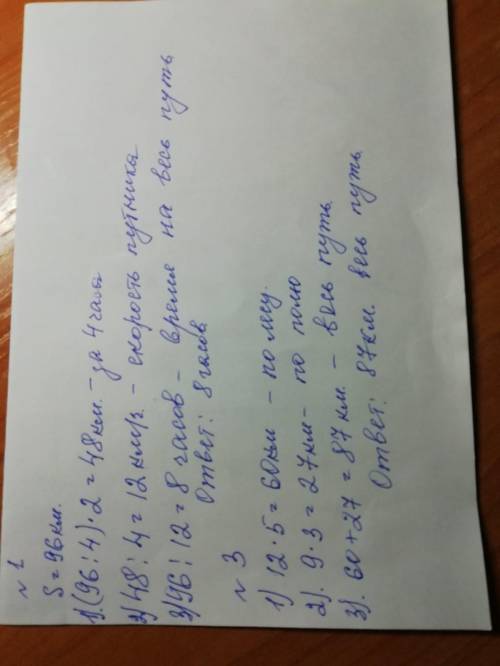 № 1
S = 96 км.
1).(96:4)·2 = 48 км. - за 4 часа
2)48:4 = 12 км/ч. - скорость путника
3)96:12 = 8 часов - время на весь путь
Ответ: 8 часов
№ 3
1) 12·5 = 60 км - по лесу.
2). 9·3 = 27 км - по полю
3). 60+27 = 87 км. - весь путь.
Ответ: 87 км. весь путь.